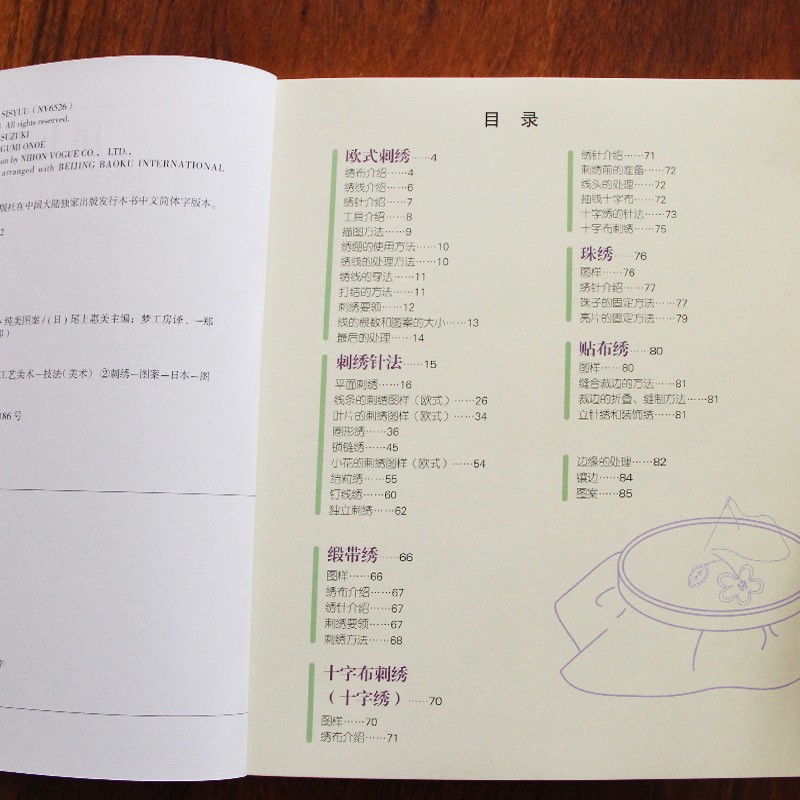 SISYUU（NV6526）
All rights reserved.
SUZUKI
GUMI ONOE
on by NIHON VOGUE CO.， LTD.，
arranged with BEIJING BAOKU INTERNATIONAL
版社在中国大陆独家出版发行本书中文简体字版本。
2
纯美图案/（日）尾上惠美主编；梦工房译．－郑
工艺美术－技法（美术） ②刺绣－图案－日本－图
186号
字
目 录
欧式刺绣……4
绣布介绍……4
绣线介绍……6
绣针介绍……7
工具介绍……8
描图方法……9
绣绷的使用方法……10
绣线的处理方法……10
绣线的穿法……11
打结的方法……11
刺绣要领……12
线的根数和图案的大小……13
最后的处理……14
刺绣针法……15
平面刺绣……16
线条的刺绣图样（欧式）……26
叶片的刺绣图样（欧式）……34
圈形绣……36
锁链绣……45
小花的刺绣图样（欧式）……54
结粒绣……55
钉线绣……60
独立刺绣……62
缎带绣……66
图样……66
绣布介绍……67
绣针介绍……67
刺绣要领……67
刺绣方法……68
十字布刺绣
（十字绣）……70
图样……70
绣布介绍……71
绣针介绍……71
刺绣前的准备……72
线头的处理……72
抽线十字布……72
十字绣的针法……73
十字布刺绣……75
珠绣……76
图样……76
绣针介绍……77
珠子的固定方法……77
亮片的固定方法……79
贴布绣……80
图样……80
缝合裁边的方法……81
裁边的折叠、缝制方法……81
立针绣和装饰绣……81
边缘的处理……82
镶边……84
图案……85